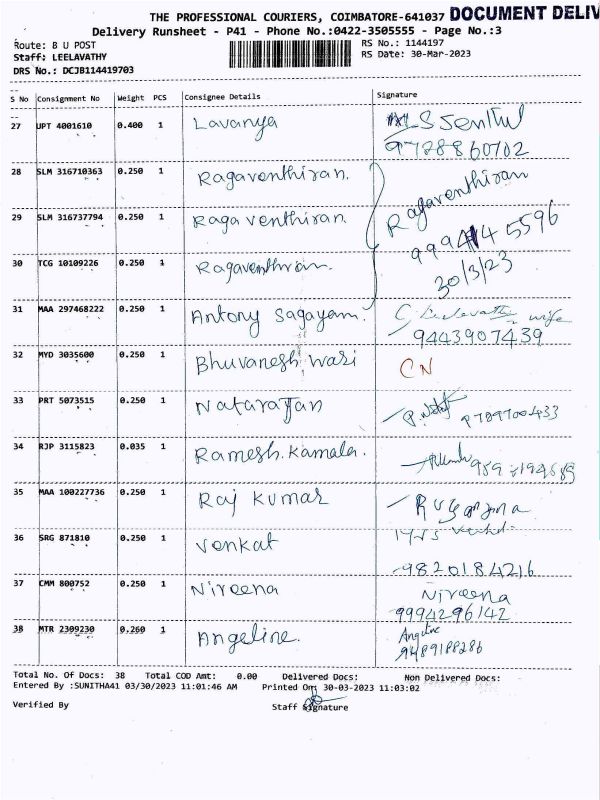 THE PROFESSIONAL COURIERS, COIMBATORE-641037 DOCUMENT DELIV
Delivery Runsheet - P41 - Phone No.:0422-3505555 - Page No.:3
Route: B U POST RS No.: 1144197
Staff: LEELAVATHY RS Date: 30-Mar-2023
DRS No.: DCJB114419703
S No Consignment No Weight PCS Consignee Details Signature
27 UPT 4001610 0.400 1 Lavanya
9728860702
28 SLM 316710363 0.250 1 Ragaventhiran. Ragaventhiran
29 SLM 316737794 0.250 1 Ragaventhiran
5596
30 TCG 10109226 0.250 1 Ragaventhiran.
30/3/23
31 MAA 297468222 0.250 1 Antony Sagayam. wife
9443907439
32 MYD 3035600 0.250 1 Bhuvaneshwari CN
33 PRT 5073515 0.250 1 Natarajan
34 RJP 3115823 0.035 1 Ramesh.Kamala.
35 MAA 100227736 0.250 1 Raj Kumar
36 SRG 871810 0.250 1 Venkat
9820184216
37 CMM 800752 0.250 1 Nireena Nireena
9994296142
38 MTR 2309230 0.260 1 Angeline. Angeline
9489188286
Total No. Of Docs: 38 Total COD Amt: 0.00 Delivered Docs: Non Delivered Docs:
Entered By :SUNITHA41 03/30/2023 11:01:46 AM Printed On: 30-03-2023 11:03:02
Verified By Staff Signature